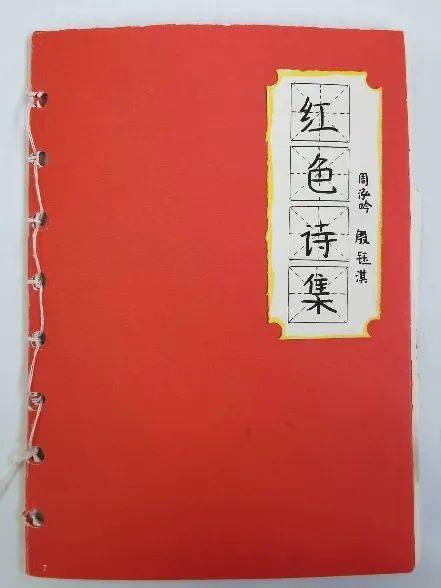 红色诗集
周泓吟 殷钰淇